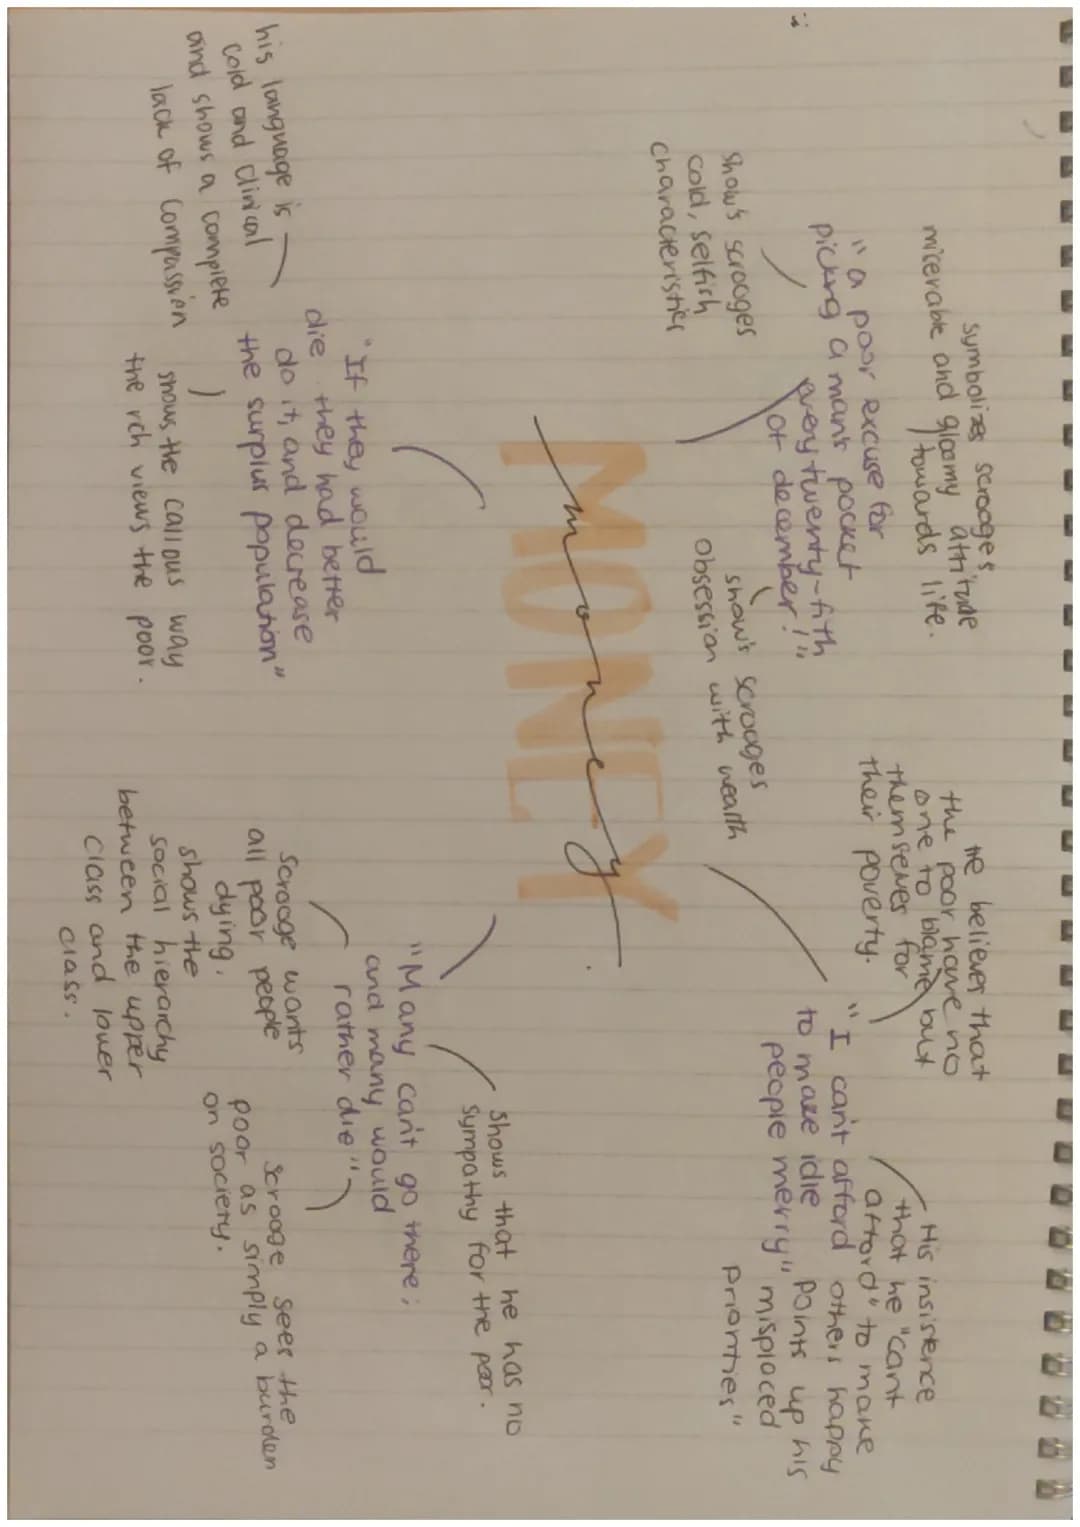 MONEY
money
symbolizes scrooge's
micerable and gloomy attitude
towards life.
"a poor excuse for
picking a man's pocket
every twenty-fith
of december!"
show's scrooges
cold, selfish
characteristics
show's scrooges
obsession with wealth
He believes that
the poor have no
one to blame but
themselves for
their poverty.
"I can't afford
to make idle
people merry"
His insistence
that he "cant
afford" to make
others happy
points up his
misplaced
priorities"
"If they would
die they had better
do it, and decrease
the surplus population"
his language is
cold and clinical
and shows a complete
lack of compassion
shows the callous way
the rich views the poor.
"Many can't go there;
and many would
rather die"
shows that he has no
sympathy for the poor.
Scrooge wants
all poor people
dying.
shows the
social hierarchy
between the upper
class and lower
class.
Scrooge sees the
poor as simply a burden
on society.